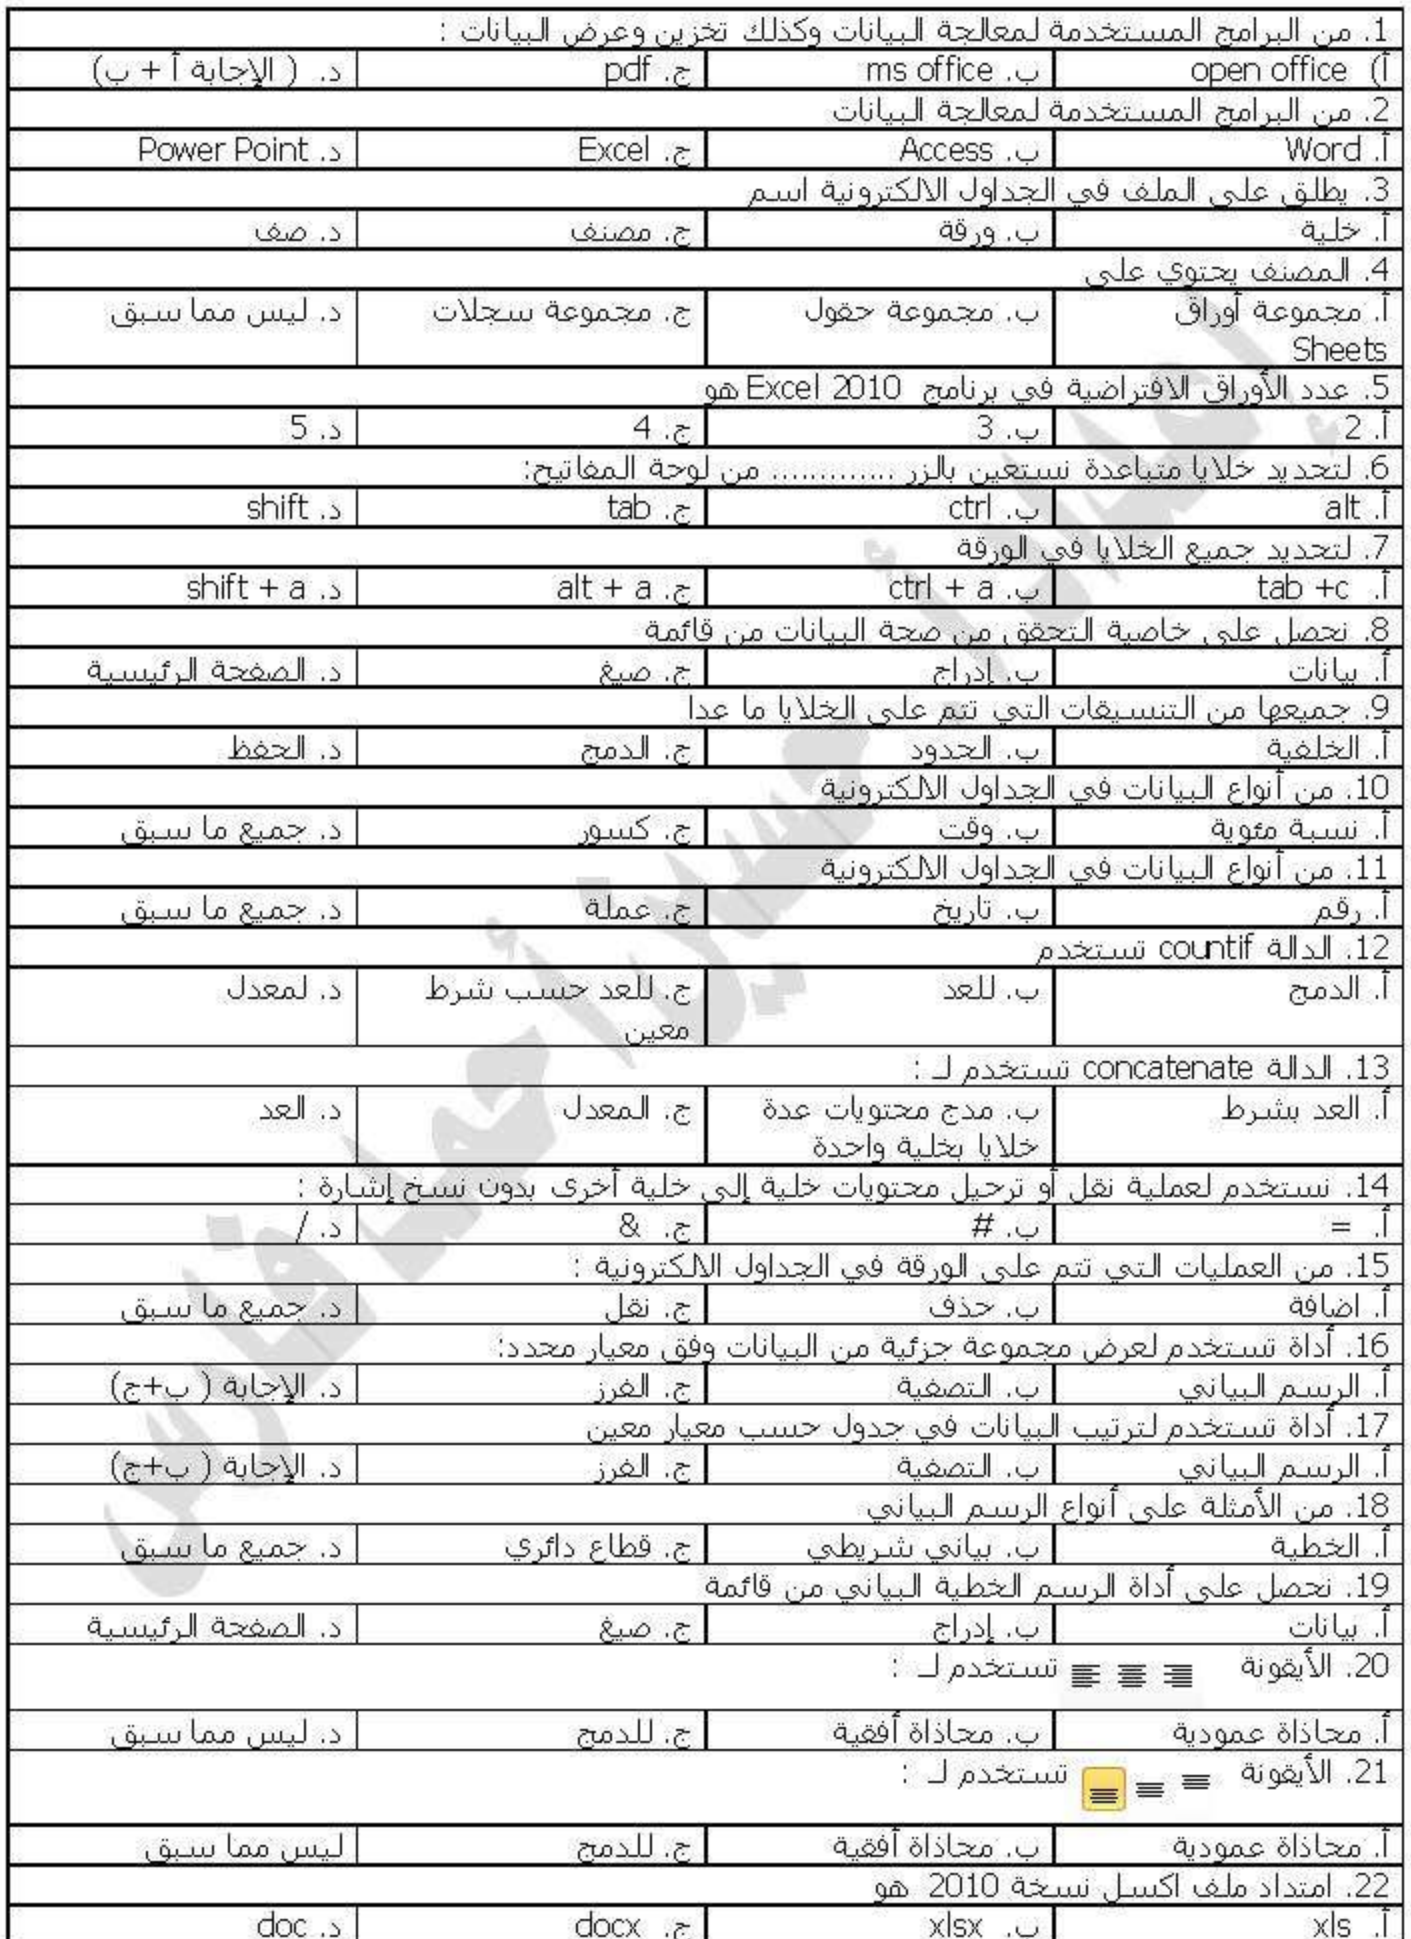 1. من البرامج المستخدمة لمعالجة البيانات وكذلك تخزين وعرض البيانات :
أ) open office ب. ms office ج. pdf د. ( الإجابة أ + ب)
2. من البرامج المستخدمة لمعالجة البيانات
أ. Word ب. Access ج. Excel د. Power Point
3. يطلق على الملف في الجداول الالكترونية اسم
أ. خلية ب. ورقة ج. مصنف د. صف
4. المصنف يحتوي على
أ. مجموعة أوراق ب. مجموعة حقول ج. مجموعة سجلات د. ليس مما سبق
Sheets
5. عدد الأوراق الافتراضية في برنامج Excel 2010 هو
أ. 2 ب. 3 ج. 4 د. 5
6. لتحديد خلايا متباعدة نستعين بالزر ............. من لوحة المفاتيح:
أ. alt ب. ctrl ج. tab د. shift
7. لتحديد جميع الخلايا في الورقة
أ. tab +c ب. ctrl + a ج. alt + a د. shift + a
8. نحصل على خاصية التحقق من صحة البيانات من قائمة
أ. بيانات ب. إدراج ج. صيغ د. الصفحة الرئيسية
9. جميعها من التنسيقات التي تتم على الخلايا ما عدا
أ. الخلفية ب. الحدود ج. الدمج د. الحفظ
10. من أنواع البيانات في الجداول الالكترونية
أ. نسبة مئوية ب. وقت ج. كسور د. جميع ما سبق
11. من أنواع البيانات في الجداول الالكترونية
أ. رقم ب. تاريخ ج. عملة د. جميع ما سبق
12. الدالة countif تستخدم
أ. الدمج ب. للعد ج. للعد حسب شرط د. لمعدل
معين
13. الدالة concatenate تستخدم لـ :
أ. العد بشرط ب. مدج محتويات عدة ج. المعدل د. العد
خلايا بخلية واحدة
14. نستخدم لعملية نقل أو ترحيل محتويات خلية إلى خلية أخرى بدون نسخ إشارة :
أ. = ب. # ج. & د. /
15. من العمليات التي تتم على الورقة في الجداول الالكترونية :
أ. اضافة ب. حذف ج. نقل د. جميع ما سبق
16. أداة تستخدم لعرض مجموعة جزئية من البيانات وفق معيار محدد:
أ. الرسم البياني ب. التصفية ج. الفرز د. الإجابة ( ب+ج)
17. أداة تستخدم لترتيب البيانات في جدول حسب معيار معين
أ. الرسم البياني ب. التصفية ج. الفرز د. الإجابة ( ب+ج)
18. من الأمثلة على أنواع الرسم البياني
أ. الخطية ب. بياني شريطي ج. قطاع دائري د. جميع ما سبق
19. نحصل على أداة الرسم الخطية البياني من قائمة
أ. بيانات ب. إدراج ج. صيغ د. الصفحة الرئيسية
20. الأيقونة تستخدم لـ :
أ. محاذاة عمودية ب. محاذاة أفقية ج. للدمج د. ليس مما سبق
21. الأيقونة تستخدم لـ :
أ. محاذاة عمودية ب. محاذاة أفقية ج. للدمج ليس مما سبق
22. امتداد ملف اكسل نسخة 2010 هو
أ. xls ب. xlsx ج. docx د. doc